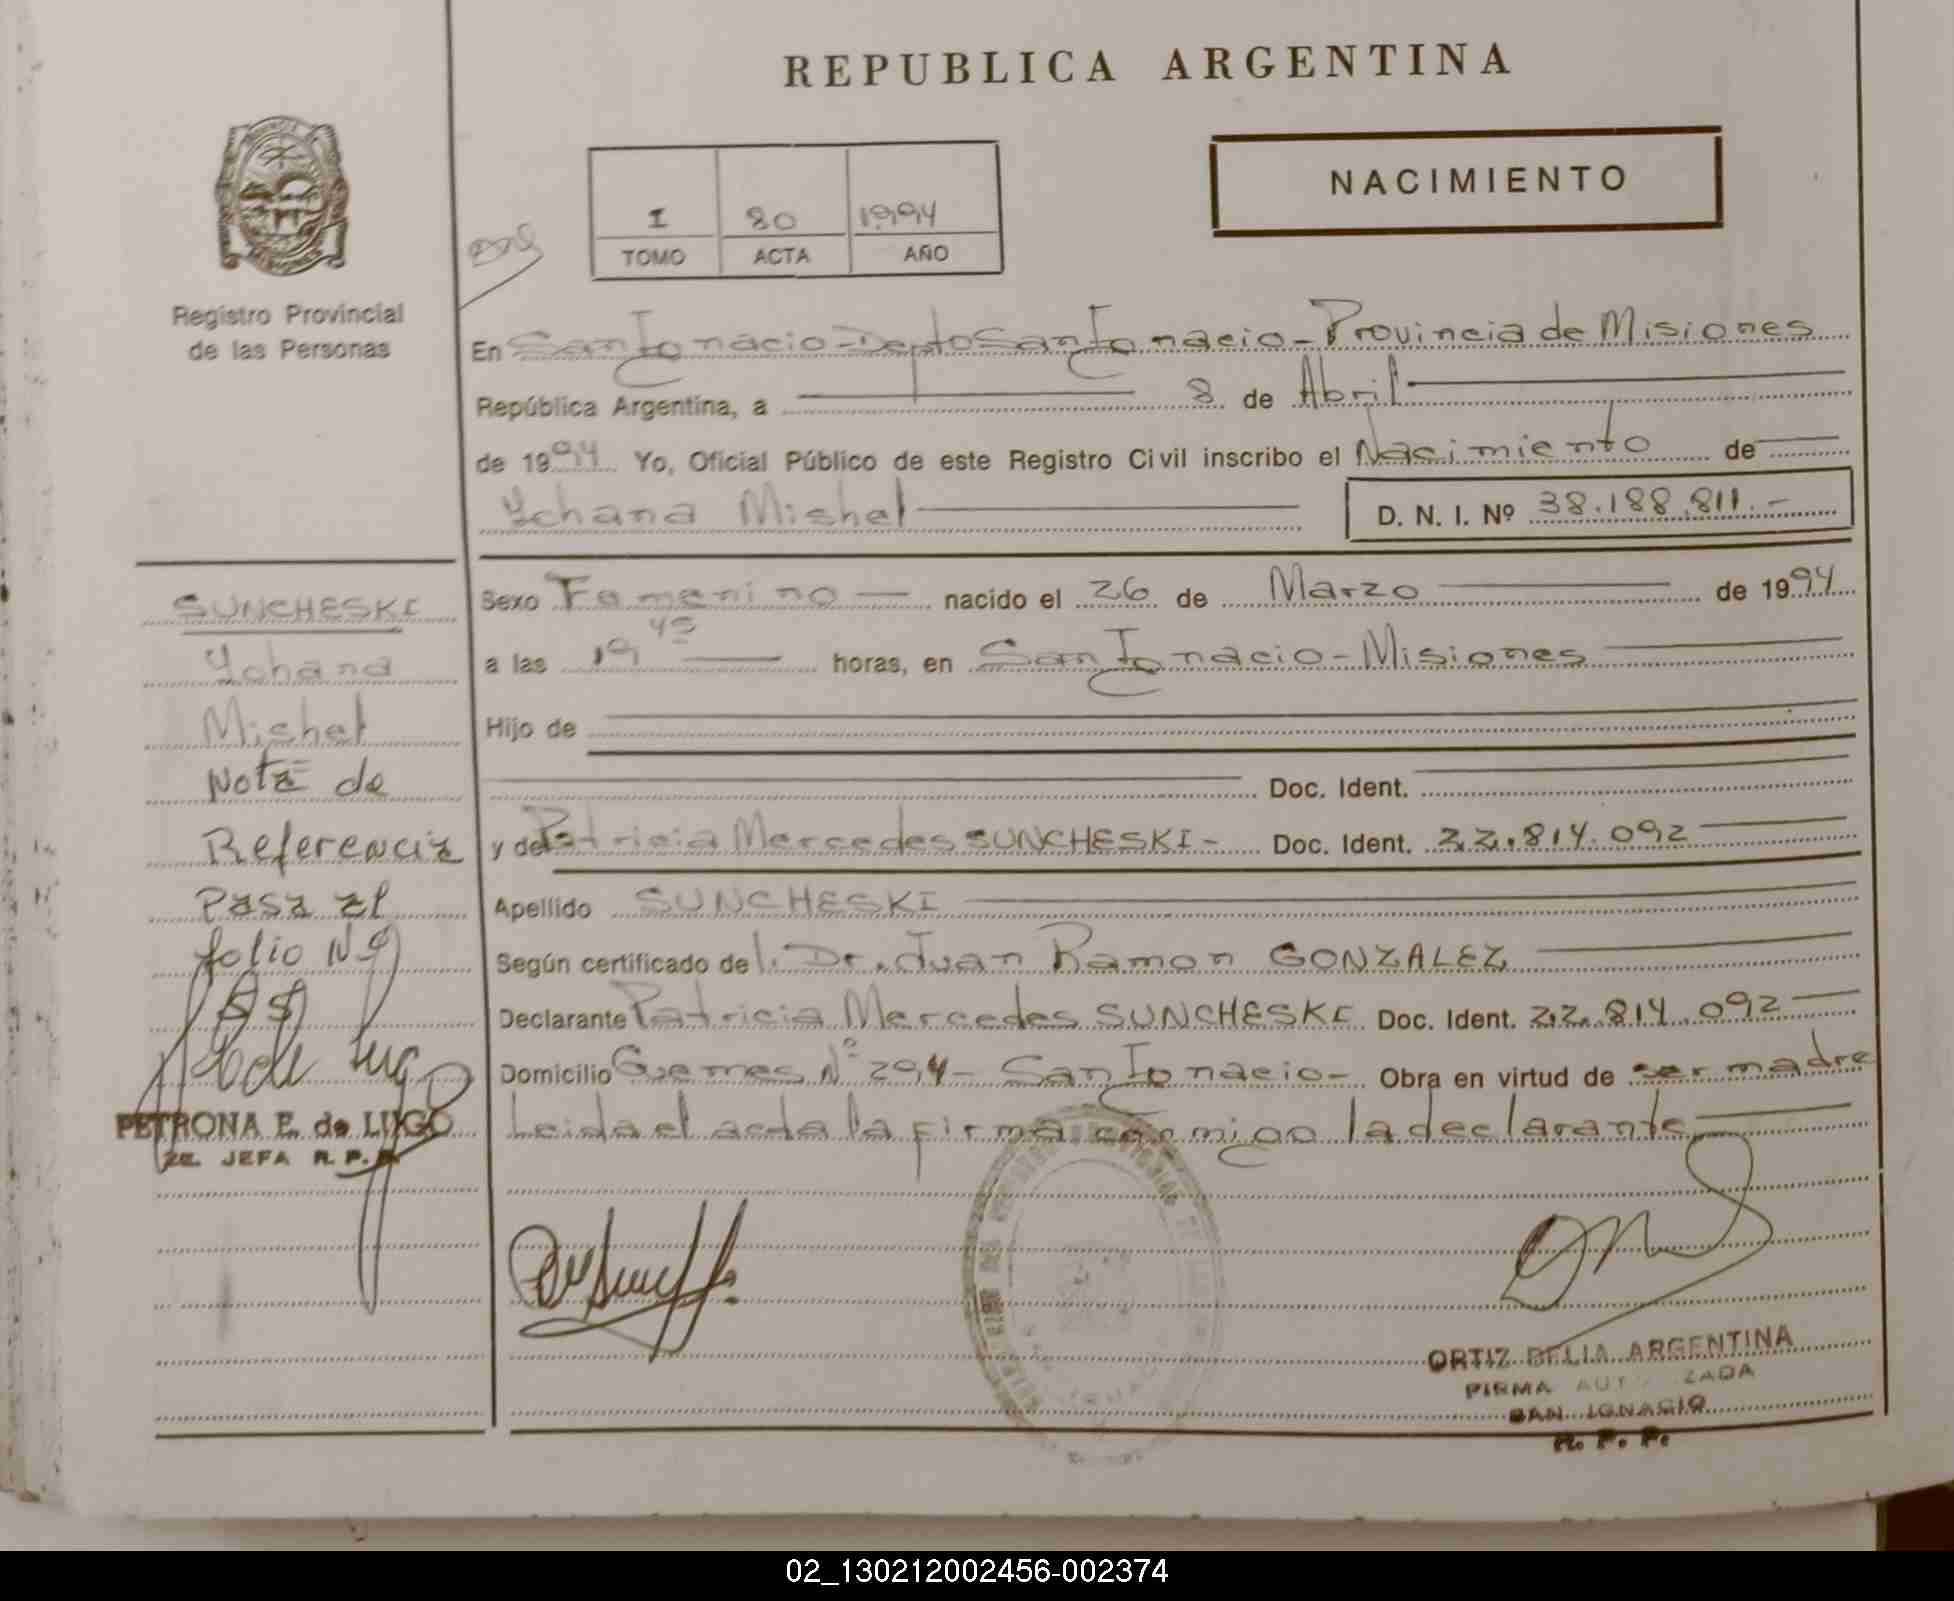 REPUBLICA ARGENTINA
NACIMIENTO
I 80 1994
TOMO ACTA AÑO
Registro Provincial
de las Personas
En San Ignacio - Depto San Ignacio - Provincia de Misiones
República Argentina, a 8 de Abril
de 1994 Yo, Oficial Público de este Registro Civil inscribo el Nacimiento de
Yohana Mishel D. N. I. Nº 38.188.811.-
SUNCHESKI
Yohana
Mishel
Nota de
Referencia
Pasa al
folio Nº
PETRONA E. de LUGO
2e. JEFA R. P. P.
Sexo Femenino nacido el 26 de Marzo de 1994
a las 19 45 horas, en San Ignacio - Misiones
Hijo de
Doc. Ident.
y de Patricia Mercedes SUNCHESKI - Doc. Ident. 22.814.092
Apellido SUNCHESKI
Según certificado del Dr. Juan Ramon GONZALEZ
Declarante Patricia Mercedes SUNCHESKI Doc. Ident. 22.814.092
Domicilio Guemes Nº 294 - San Ignacio - Obra en virtud de ser madre
Leida el acta la firma conmigo la declarante
ORTIZ DELIA ARGENTINA
FIRMA AUTORIZADA
SAN IGNACIO
R. P. P.
02_130212002456-002374